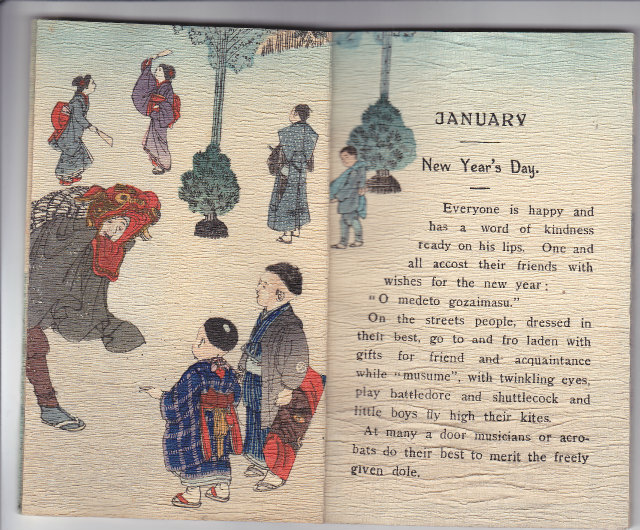 JANUARY
New Year's Day.
Everyone is happy and
has a word of kindness
ready on his lips. One and
all accost their friends with
wishes for the new year:
"O medeto gozaimasu."
On the streets people, dressed in
their best, go to and fro laden with
gifts for friend and acquaintance
while "musume", with twinkling eyes,
play battledore and shuttlecock and
little boys fly high their kites.
At many a door musicians or acro-
bats do their best to merit the freely
given dole.